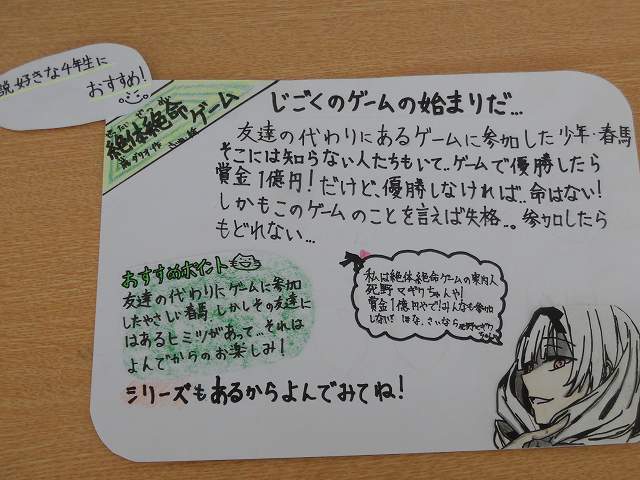 説好きな4年生に
おすすめ!
絶体絶命
ゲーム
じごくのゲームの始まりだ…
友達の代わりにあるゲームに参加した少年・春馬
そこには知らない人たちもいて…ゲームで優勝したら
賞金1億円!だけど、優勝しなければ…命はない!
しかもこのゲームのことを言えば失格…。参加したら
もどれない…
おすすめポイント
友達の代わりにゲームに参加
したやさしい春馬 しかしその友達に
はあるヒミツがあって…それは
よんでからのお楽しみ!
シリーズもあるからよんでみてね!
私は絶体絶命ゲームの案内人
死野マギワちゃんや!
賞金1億円やで!みんなも参加
しない? ほな、さいなら